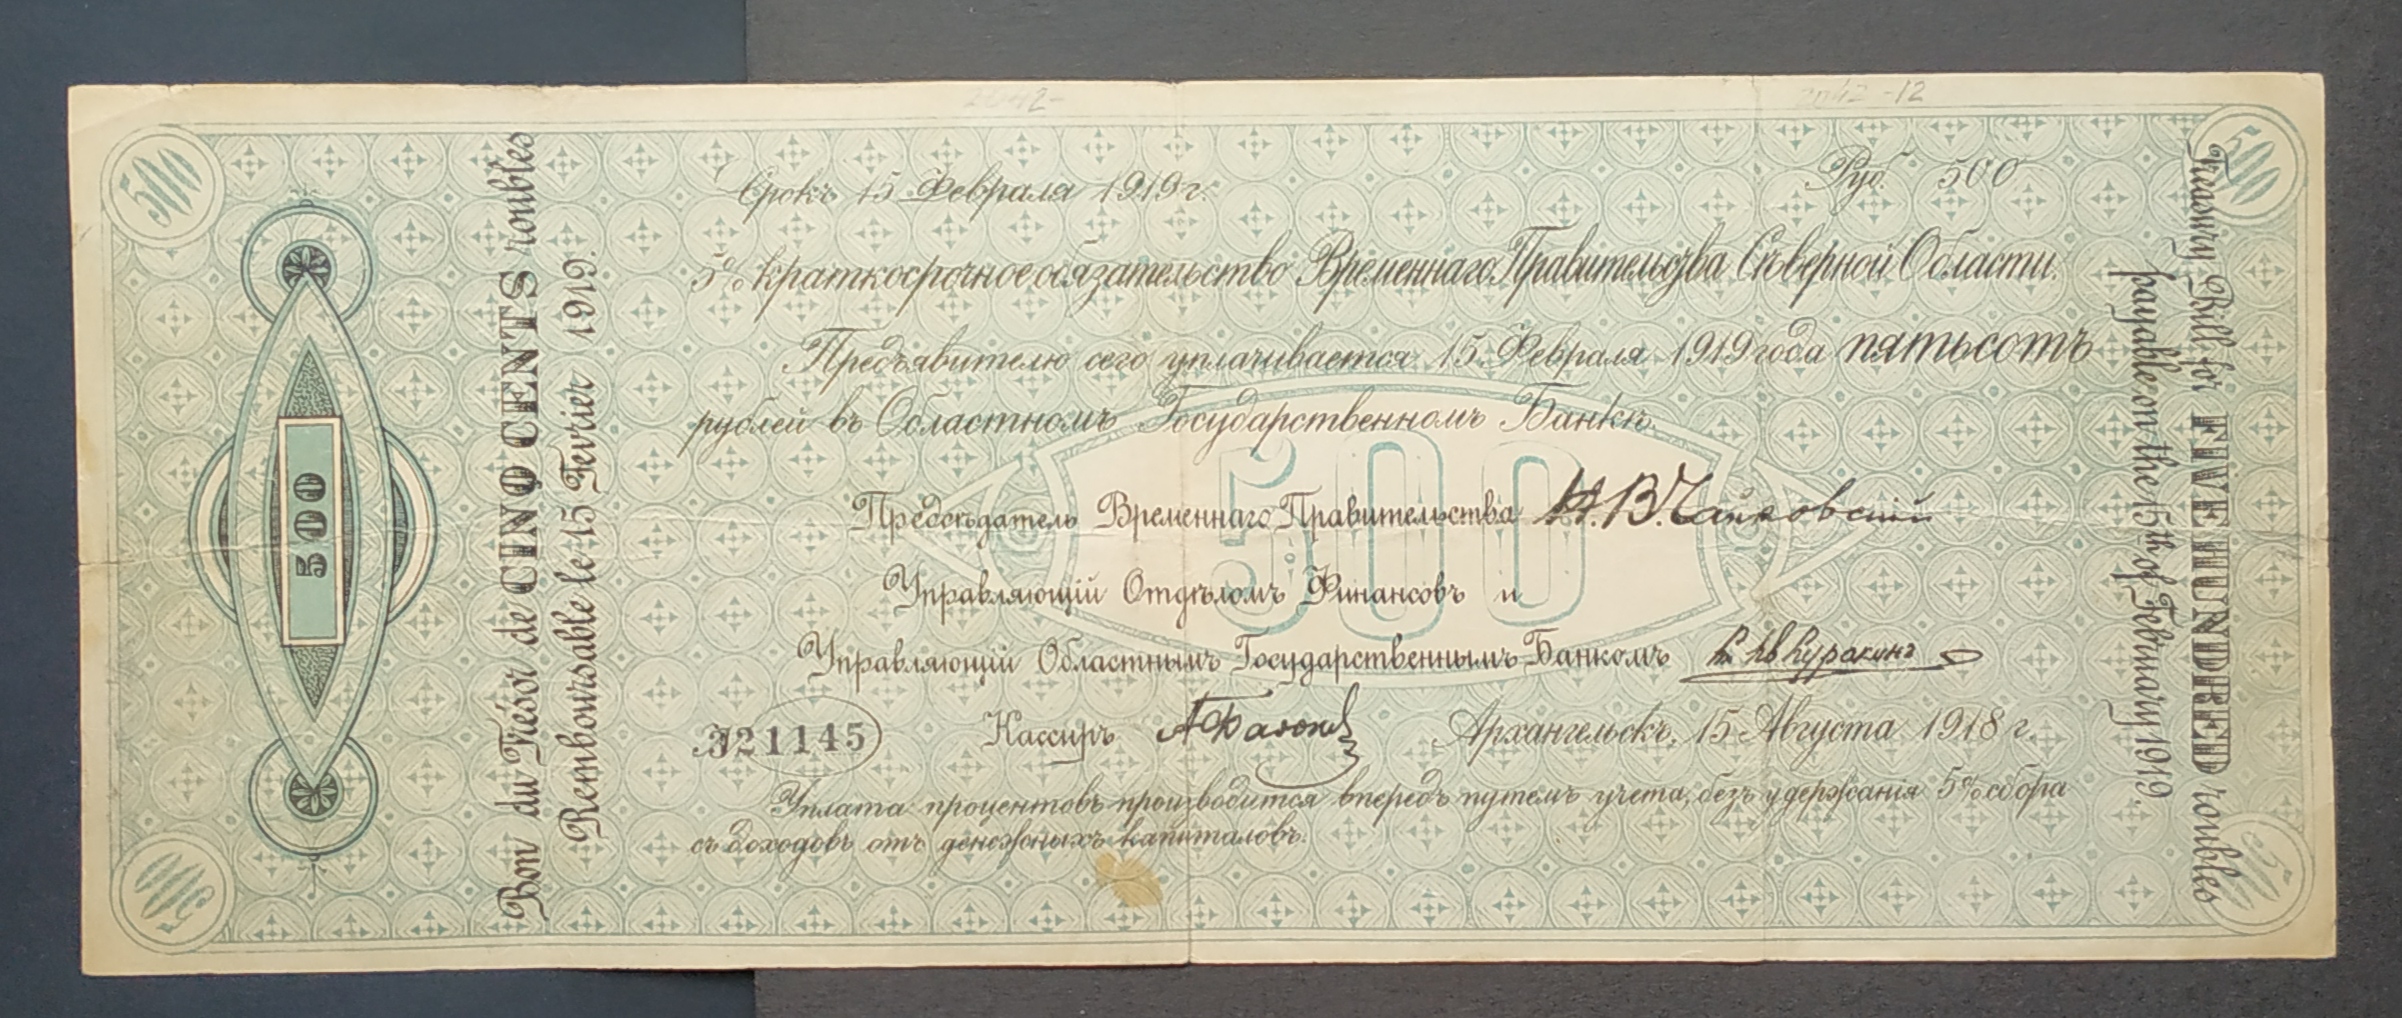 2042-12
500
500
Срокъ 15 Февраля 1919 г.
Руб. 500
5% краткосрочное обязательство Временнаго Правительства Сѣверной Области.
Предъявителю сего уплачивается 15 Февраля 1919 года пятьсотъ
рублей въ Областномъ Государственномъ Банкѣ.
500
Предсѣдатель Временнаго Правительства Н. В. Чайковскій
Управляющій Отдѣломъ Финансовъ и
Управляющій Областнымъ Государственнымъ Банкомъ Куракинъ
321145
Кассиръ
Архангельскъ, 15 Августа 1918 г.
Уплата процентовъ производится впередъ путемъ учета, безъ удержанія 5% сбора
съ доходовъ отъ денежныхъ капиталовъ.
500
Bon du Trésor de CINQ CENTS roubles
Remboursable le 15 Fevrier 1919.
Treasury Bill for FIVE HUNDRED roubles
payable on the 15th of February 1919.
500
500